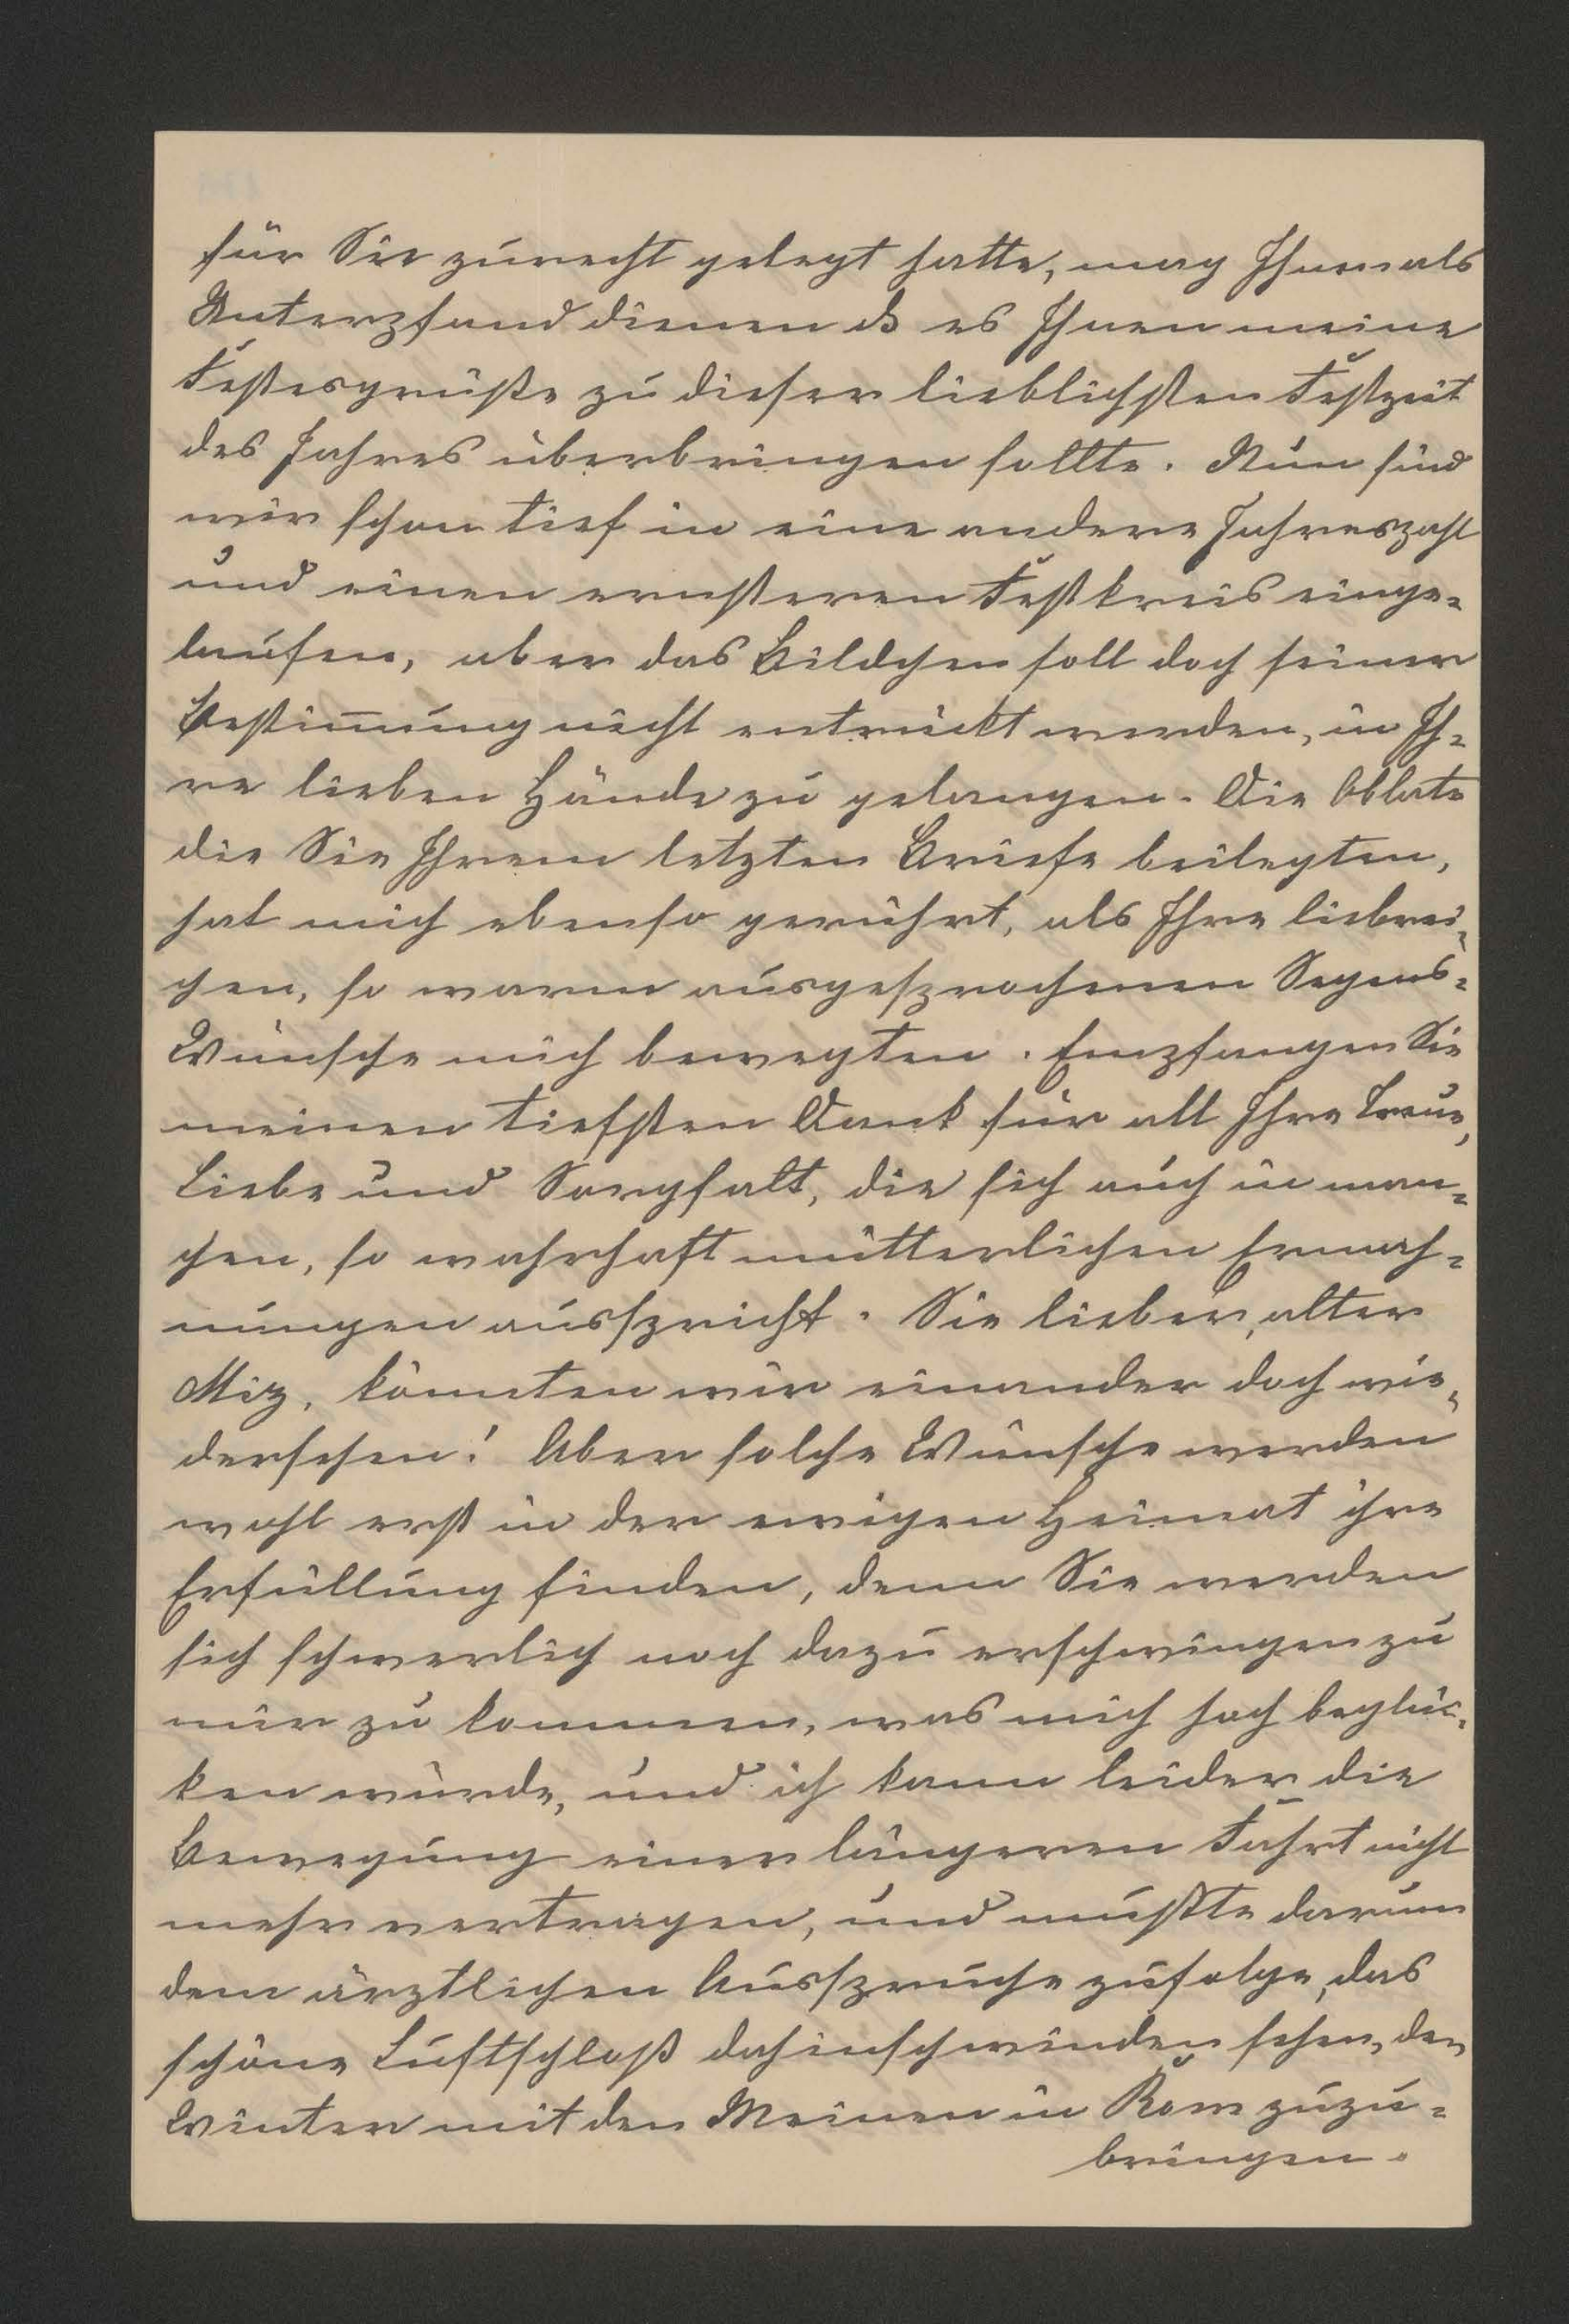 für Sie zurecht gelegt hatte, mag Ihnen als
Unterpfand dienen dß es Ihnen meine
Festesgrüße zu dieser lieblichsten Festzeit
des Jahres überbringen sollte. Nun sind
wir schon tief in eine andere Jahreszahl
und einen ernsteren Festkreis einge=
laufen, aber das Bildchen soll doch seiner
Bestim̅ung nicht entrückt werden, in Ih=
re lieben Hände zu gelangen. Die Oblate
die Sie Ihrem letzten Briefe beilegten,
hat mich ebenso gerührt, als Ihre liebrei=
chen, so warm ausgesprochenen Segens=
Wünsche mich bewegten. Empfangen Sie
meinen tiefsten Dank für all Ihre Treue,
Liebe und Sorgfalt, die sich auch in man=
chen, so wahrhaft mütterlichen Ermah=
nungen ausspricht. Sie lieber, alter
Miz, könnten wir einander doch wie=
dersehen! Aber solche Wünsche werden
wohl erst in der ewigen Heimat ihre
Erfüllung finden, denn Sie werden
sich schwerlich noch dazu erschwingen zu
mir zu kommen, was mich hoch beglüc=
ken würde, und ich kann leider die
Bewegung einer längeren Fahrt nicht
mehr vertragen, und mußte darum
dem ärztlichen Ausspruche zufolge, das
schöne Luftschloß dahinschwinden sehen, den
Winter mit den Meinen in Rom zuzu=
bringen.